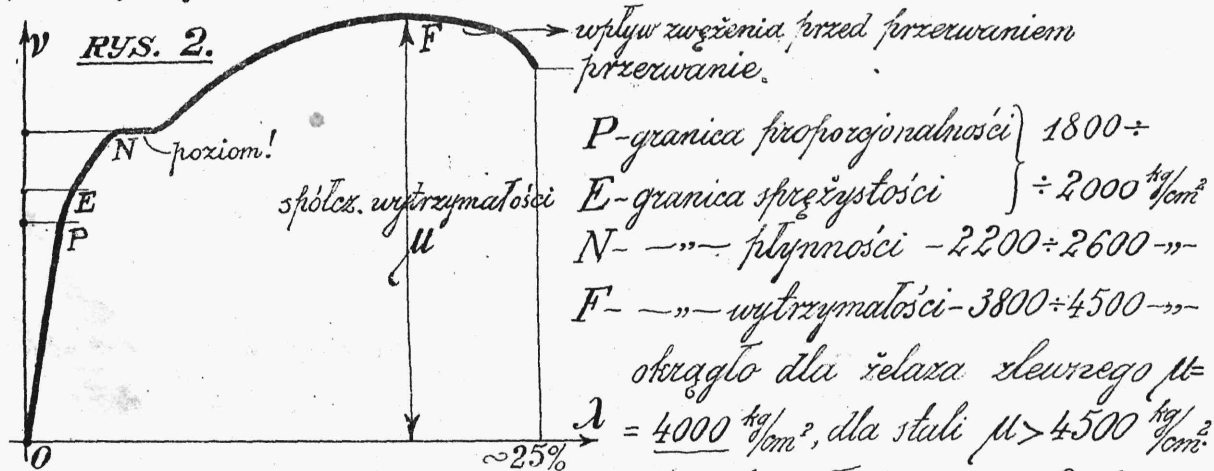 ν RYS. 2.
F
wpływ zwężenia przed przerwaniem
przerwanie.
N
poziom!
E
P
spółcz. wytrzymałości
μ
0
~25%
λ
P-granica proporcjonalności } 1800÷
E-granica sprężystości ÷2000 kg/cm²
N- —„— płynności -2200÷2600 -„-
F- —„— wytrzymałości-3800÷4500-„-
okrągło dla żelaza zlewnego μ=
= 4000 kg/cm², dla stali μ>4500 kg/cm².